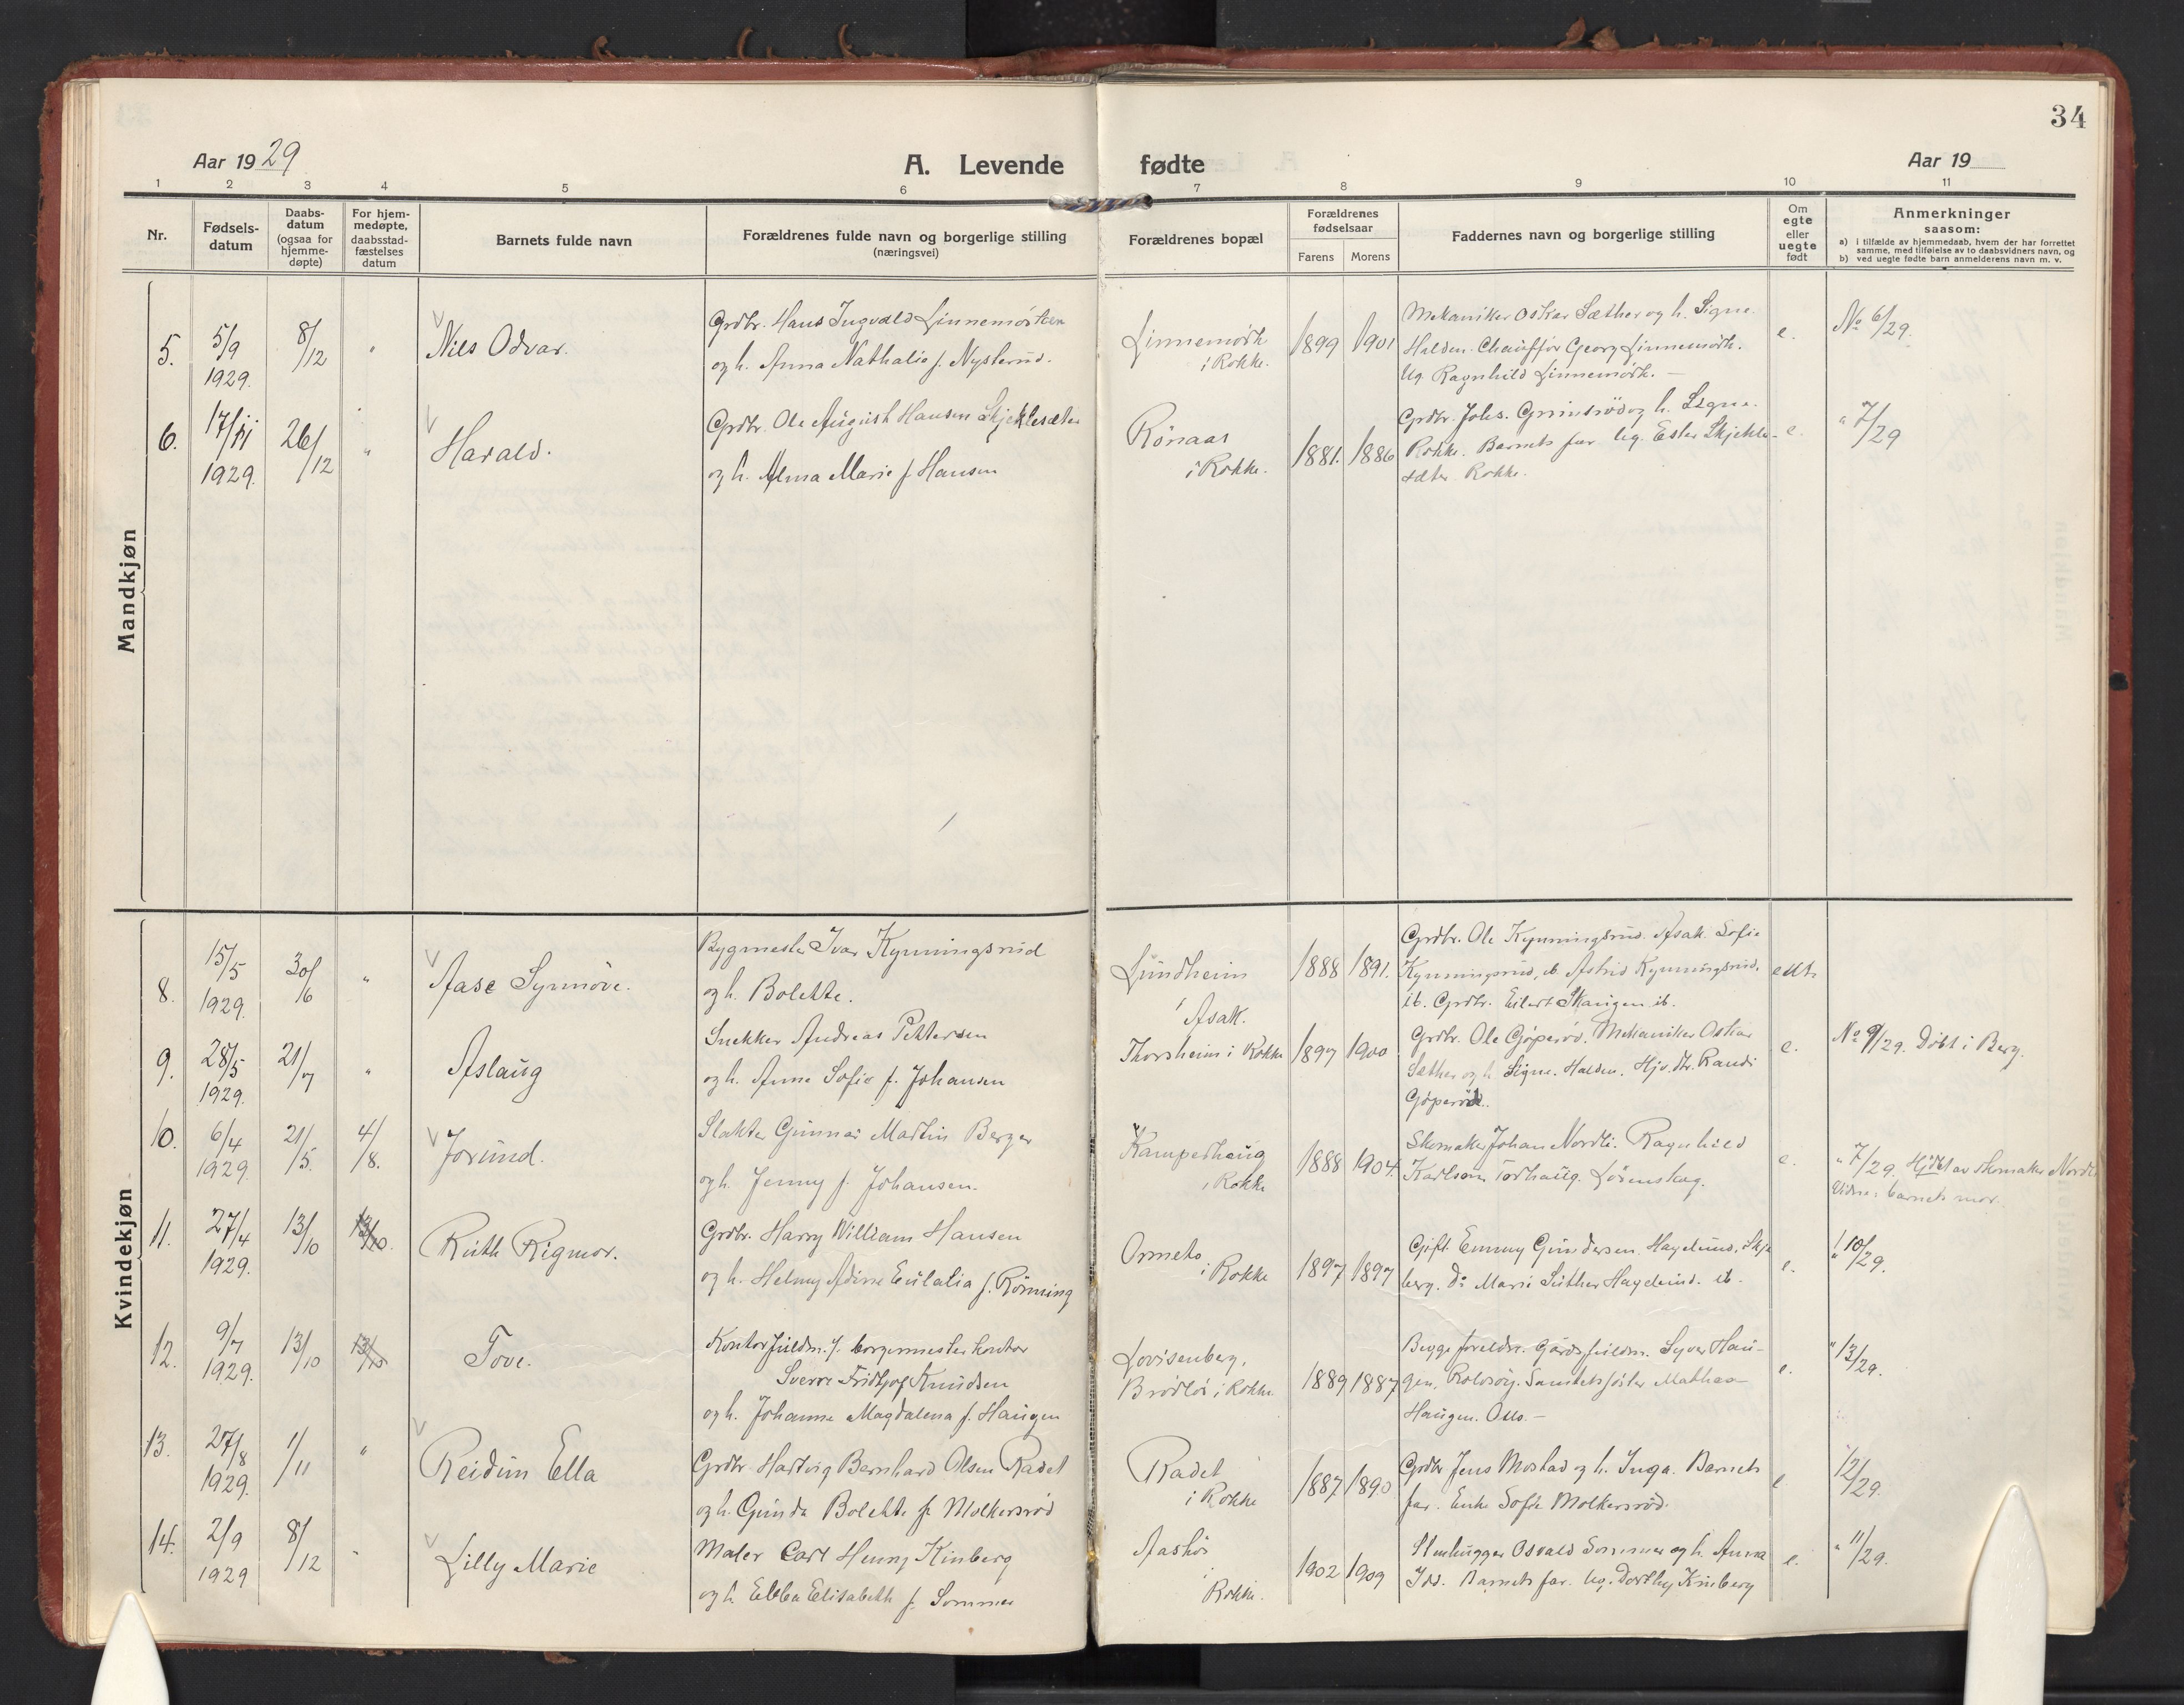 34
Aar 1929
A. Levende fødte
Aar 19
1 2 3 4 5 6 7 8 9 10 11
Nr.
Fødsels-
datum
Daabs-
datum
(ogsaa for
hjemme-
døpte)
For hjem-
medøpte,
daabsstad-
fæstelses
datum
Barnets fulde navn
Forældrenes fulde navn og borgerlige stilling
(næringsvei)
Forældrenes bopæl
Forældrenes
fødselsaar
Farens Morens
Faddernes navn og borgerlige stilling
Om
egte
eller
uegte
født
Anmerkninger
saasom:
a) i tilfælde av hjemmedaab, hvem der har forrettet
samme, med tilføielse av to daabsvidners navn, og
b) ved uegte fødte barn anmelderens navn m. v.
Mandkjøn
5. 5/9 1929. 8/12 "
Nils Odvar.
Grdbr. Hans Ingvald Linnemörken
og h. Anna Nathalie f. Nysterud.
Linnemörk
i Rokke.
1899 1901
Mekaniker Oskar Sæther og h. Signe.
Halden. Chauffør Georg Linnemörk.
Ug. Ragnhild Linnemörk. –
e.
No 6/29.
6. 17/11 1929. 26/12 "
Harald.
Grdbr. Ole August Hansen Skjeklesæter
og h. Alma Marie f. Hansen
Rönaas
i Rokke.
1881. 1886
Grdbr. Johs. Grimsröd og h. Signe.
Rokke. Barnets far. Ug. Ester Skjekle-
sæter Rokke.
e.
" 7/29
Kvindekjøn
8. 15/5 1929. 30/6 "
Aase Synnöve.
Bygmester Ivar Kynningsrud
og h. Bolette.
Lundheim
i Asak.
1888 1891.
Grdbr. Ole Kynningsrud. Asak. Sofie
Kynningsrud, ib. Astrid Kynningsrud,
ib. Grdbr. Eilert Skaugen ib.
ekte
9. 28/5 1929. 21/7 "
Aslaug
Snekker Andreas Pettersen
og h. Anna Sofie f. Johansen
Thorsheim i Rokke
1897 1900
Grdbr. Ole Göperöd. Mekaniker Oskar
Sæther og h. Signe. Halden. Hjv. Fr. Randi
Göperöd.
e.
No 9/29. Döbt i Berg.
10. 6/4 1929. 21/5. 4/8.
Jorund.
Slakter Gunnar Martin Berger
og h. Jenny f. Johansen.
Kamperhaug
i Rokke
1888 1904.
Skomaker Johan Nordli. Ragnhild
Karlsen Torhaug. Lörenskog.
e.
" 7/29. Hjdbt av skomaker Nordli
Vidne: barnets mor.
11. 27/4 1929. 13/10 13/10.
Ruth Rigmor.
Grdbr. Harry William Hansen
og h. Helmy Adine Eulalia f. Rönning
Ormeto
i Rokke
1897 1897
Gift. Emmy Gundersen Hagelund, Skje
berg. Do Marie Hagelund. ib.
e.
" 10/29.
12. 9/7 1929. 13/10 13/10
Tove.
Kontorfuldm. borgermesterkontor
Sverre Fridtjof Knudsen
og h. Johanne Magdalena f. Haugen
Lovisenberg,
Brödlös i Rokke
1889 1887
Begge foreldre. Gårdsfuldm. Syver Hau-
gen, Rolvsöy. Mathea
Haugen. Oslo. –
e.
" 13/29.
13. 27/8 1929. 1/11 "
Reidun Ella
Grdbr. Hartvig Bernhard Olsen Radet
og h. Gunda Bolette f. Molkersröd
Radet
i Rokke
1887 1890
Grdbr. Jens Mostad og h. Inga. Barnets
far. Enke Sofie Molkersröd.
e
" 12/29.
14. 2/9 1929 8/12 "
Lilly Marie
Maler Carl Henry Kinberg
og h. Ebba Elisabeth f. Sommer
Aashöi
i
Rokke.
1902 1909
Stenhugger Osvald Sommer og h. Anna
Idd. Barnets far. Ug. Dorthy Kinberg
e.
" 11/29.